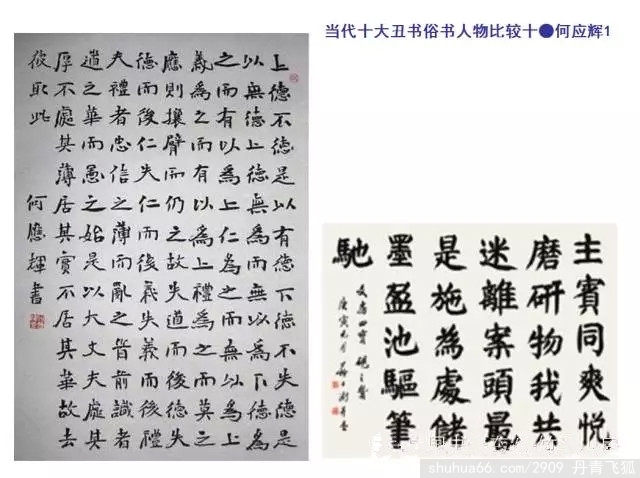 当代十大丑书俗书人物比较十●何应辉1
上德不德是以有德下德不失德是
以無德上德無為而無以為下德為
之而有以為上仁為之而無以為上
義為之而有以為上禮為之而莫之
應則攘臂而仍之故失道而後德失
德而後仁失仁而後義失義而後禮
夫禮者忠信之薄而亂之首前識者
道之華而愚之始是以大丈夫處其
厚不處其薄居其實不居其華故去
彼取此
何應輝書
主賓同爽悅
磨研物我共
迷離案頭最
是施為處儲
墨盈池驅筆
馳
文房四寶硯之
庚寅
shuhua66.com/2909 丹青飞狐